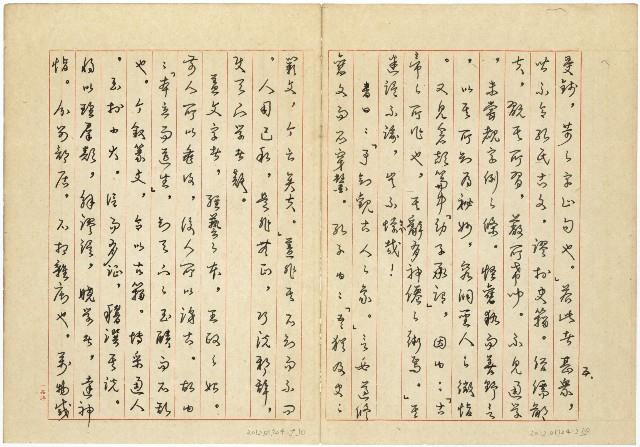 五.
受錢,苛之字止句也。」若此者甚衆,
皆不合孔氏古文,謬於史籀。俗儒鄙
夫,翫其所習,蔽所希聞。不見通學
,未嘗覩字例之條。怪舊埶而善野言
,以其所知為秘妙,究洞聖人之微恉
。又見倉頡篇中「幼子承詔」,因曰:「古
帝之所作也,其辭有神僊之術焉。」其
迷誤不諭,豈不悖哉!
書曰:「予欲觀古人之象。」言必遵修
舊文而不穿鑿。孔子曰:「吾猶及史之
闕文,今亡矣夫。」蓋非其不知而不問
。人用己私,是非無正,巧說邪辭,
使天下學者疑。
蓋文字者,經藝之本,王政之始。
前人所以垂後,後人所以識古。故曰
:「本立而道生」,知天下之至賾而不可亂
也。今敘篆文,合以古籀。博采通人
。至於小大。信而有證,稽譔其說。
將以理羣類,解謬誤,曉學者,達神
恉。分別部居。不相雜廁也。萬物咸